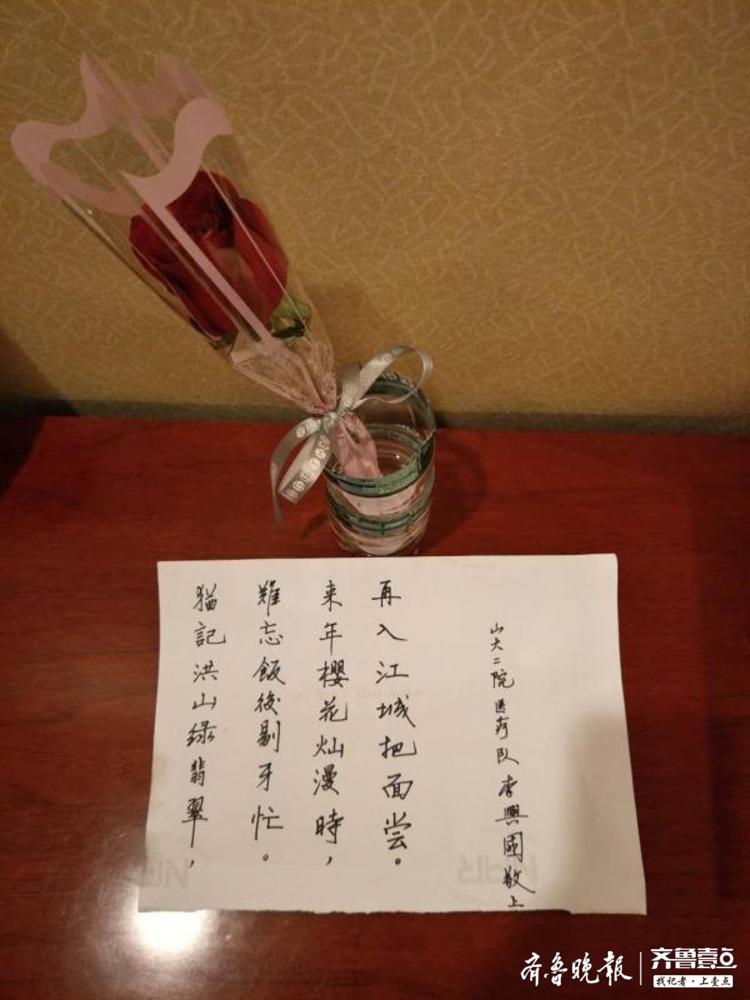 猶記洪山绿翡翠，
難忘飯後剔牙忙。
来年櫻花灿漫時，
再入江城把面尝。
山大二院医疗队李興國敬上
齐鲁晚报
齐鲁壹点
找记者·上壹点